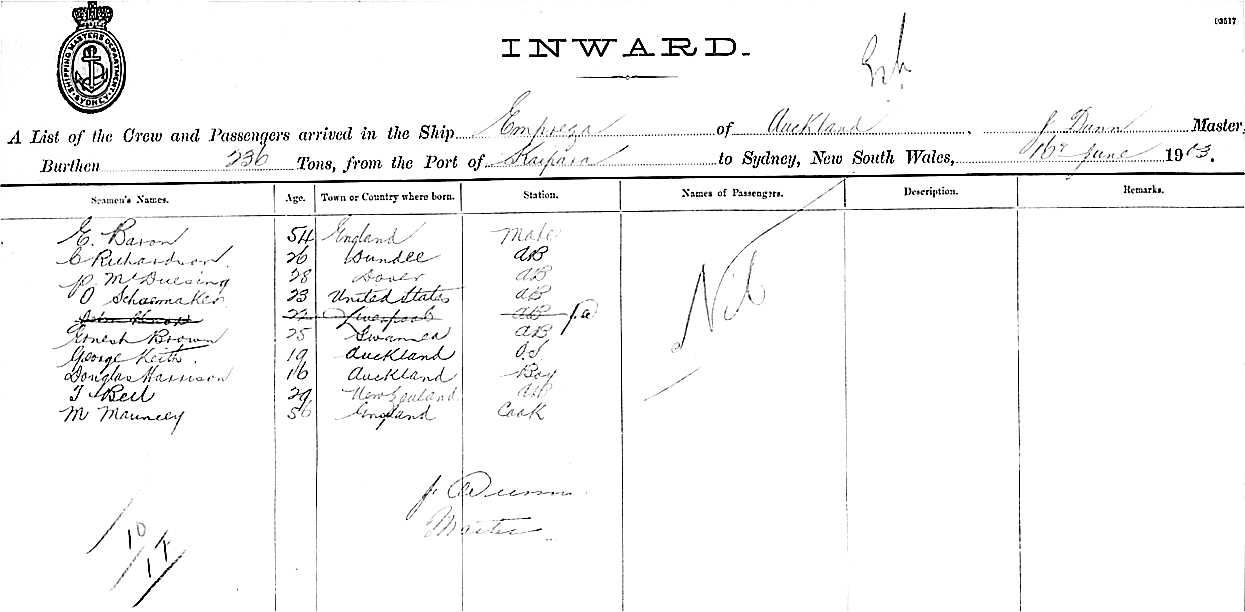 03517
SHIPPING MASTERS DEPARTMENT
SYDNEY
INWARD.
A List of the Crew and Passengers arrived in the Ship Empreza of Auckland, J Dunn Master,
Burthen 236 Tons, from the Port of Kaipara to Sydney, New South Wales, 16th June 1903.
Seamen's Names. Age. Town or Country where born. Station. Names of Passengers. Description. Remarks.
E. Baron 54 England Mate
C Richardson 26 Dundee AB
P. 28 Dover AB
O Schoemaker 23 United States AB
22 Liverpool AB
Ernest Brown 25 Swansea AB
George Keith. 19 Auckland O.S
Douglas Harrison 16 Auckland Boy
T Bell 29 New Zealand AB
M 56 England Cook
Nil
J. Dunn
Master
10